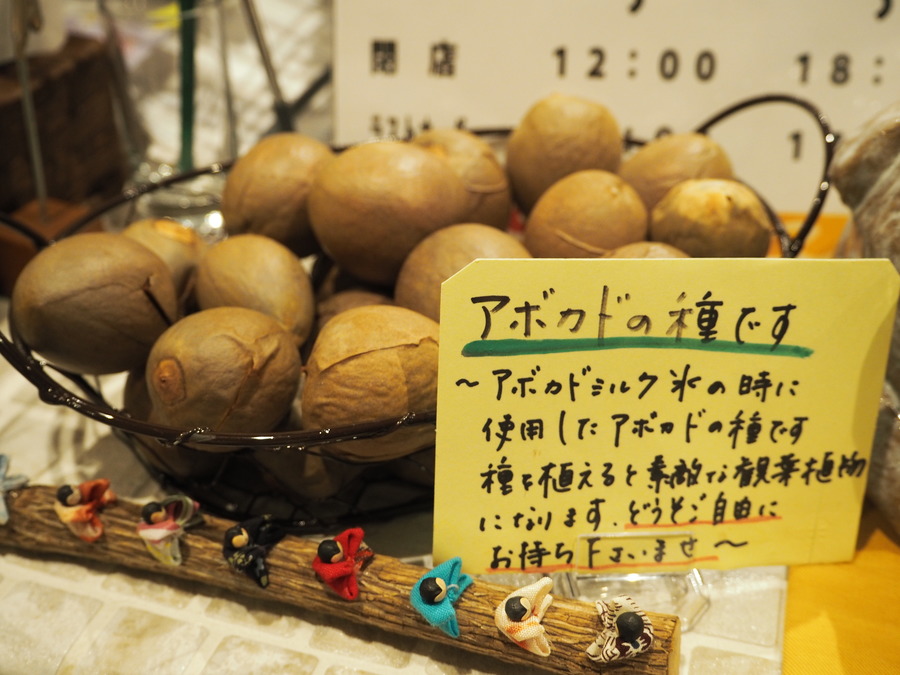 閉店 12:00 18:
アボカドの種です
~アボカドミルク氷の時に
使用したアボカドの種です
種を植えると素敵な観葉植物
になります。どうぞご自由に
お持ち下さいませ~